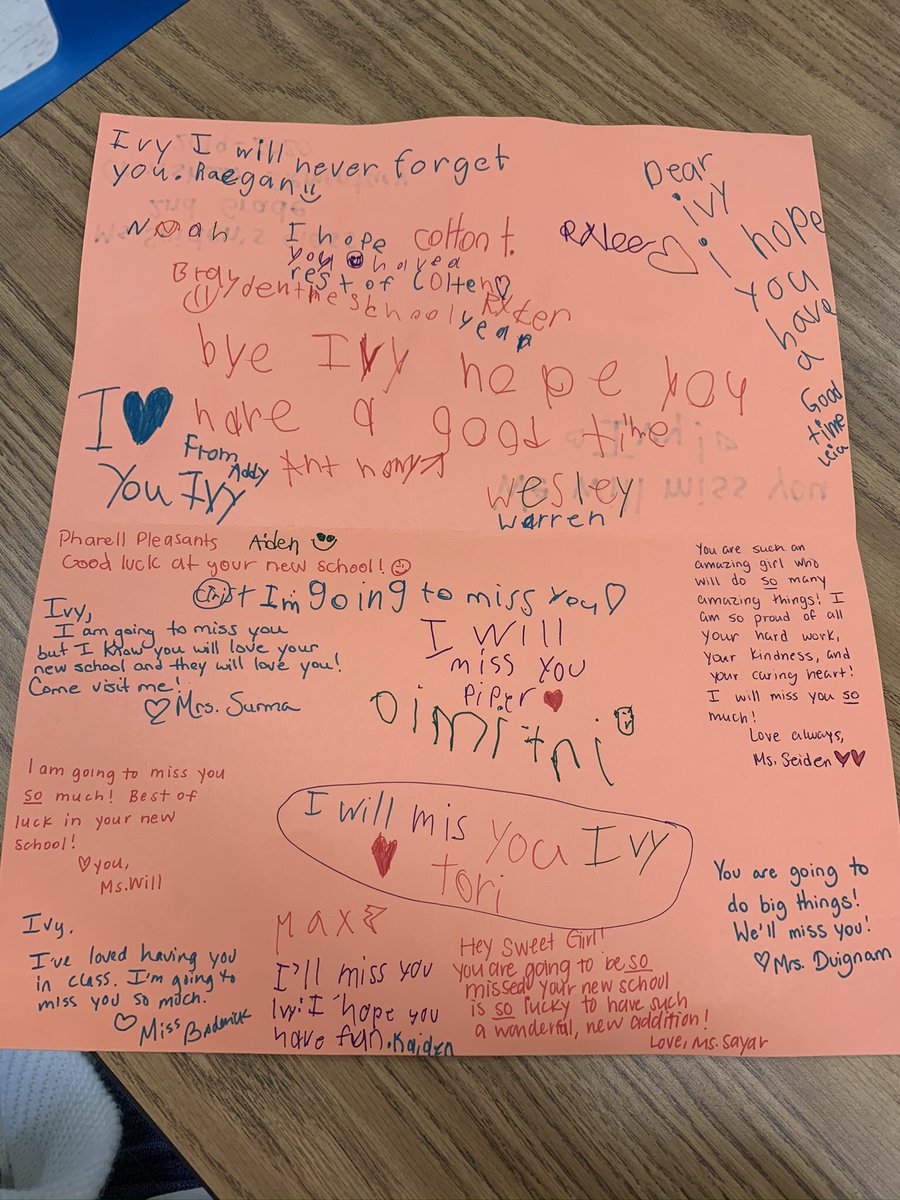 Ivy I will never forget
you. Raegan
Dear
ivy
i hope
you
have
a
Good
time
Leia
Noah
I hope
you have a
rest of
the school
year
colton t.
RXleer
Colten
Brayden
bye Ivy hope you
have a good time
I
You Ivy
From
Addy
Wesley
Warren
Pharell Pleasants
Aiden
Good luck at your new school!
I'm going to miss you
Ivy,
I am going to miss you
but I know you will love your
new school and they will love you!
Come visit me!
Mrs. Surma
I Will
miss you
Piper
You are such an
amazing girl who
will do so many
amazing things! I
am so proud of all
your hard work,
your kindness, and
your caring heart!
I will miss you so
much!
Love always,
Ms. Seiden
oimitni
I am going to miss you
so much! Best of
luck in your new
school!
you,
Ms. Will
I will mis you Ivy
tori
You are going to
do big things!
We'll miss you!
Mrs. Duignam
Ivy,
I've loved having you
in class. I'm going to
miss you so much.
Miss Broderick
Max
I'll miss you
Ivy! I hope you
have fun. Kaiden
Hey Sweet Girl!
You are going to be so
missed your new school
is so lucky to have such
a wonderful, new addition!
Love, Ms. Sayar